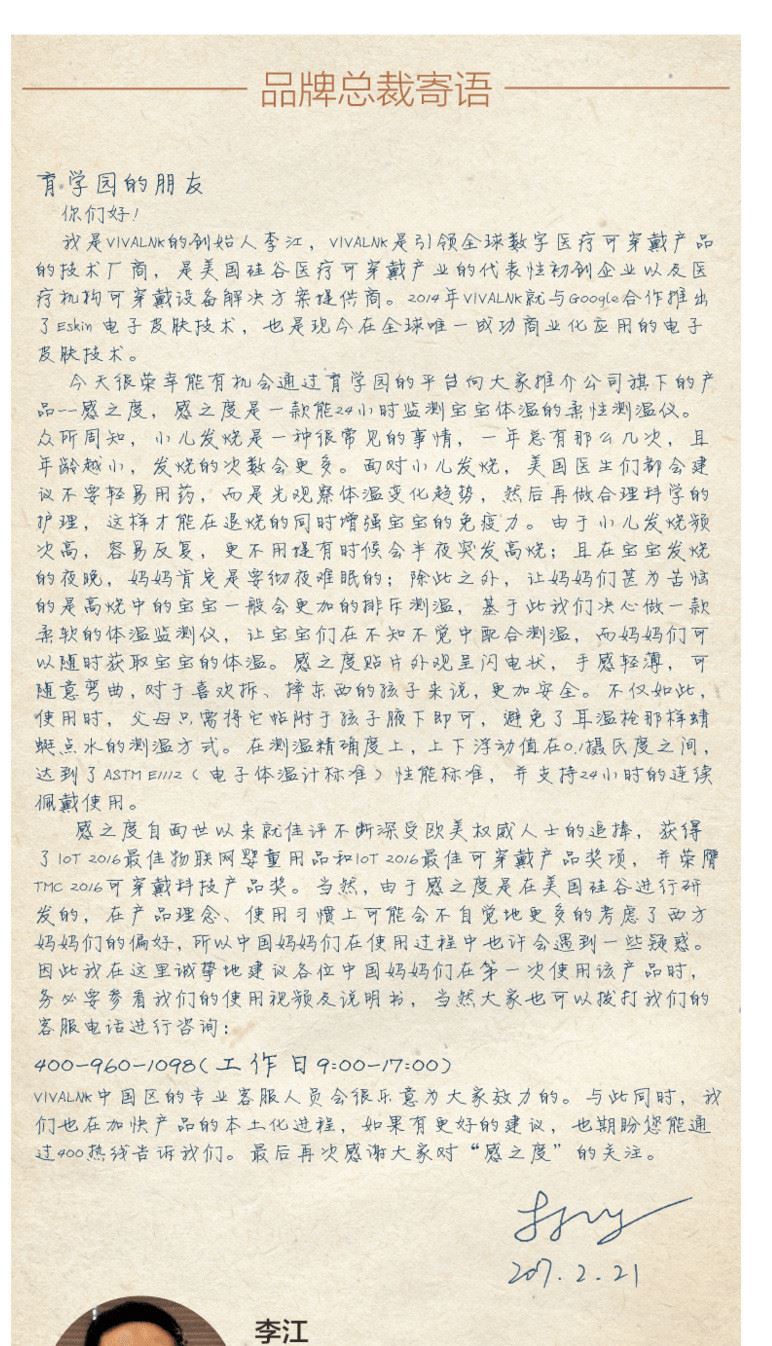 品牌总裁寄语
育学园的朋友
你们好！
我是VIVALNK的创始人李江，VIVALNK是引领全球数字医疗可穿戴产品
的技术厂商，是美国硅谷医疗可穿戴产业的代表性初创企业以及医
疗机构可穿戴设备解决方案提供商。2014年VIVALNK就与Google合作推出
了Eskin 电子皮肤技术，也是现今在全球唯一成功商业化应用的电子
皮肤技术。
今天很荣幸能有机会通过育学园的平台向大家推介公司旗下的产
品--感之度，感之度是一款能24小时监测宝宝体温的柔性测温仪。
众所周知，小儿发烧是一种很常见的事情，一年总有那么几次，且
年龄越小，发烧的次数会更多。面对小儿发烧，美国医生们都会建
议不要轻易用药，而是先观察体温变化趋势，然后再做合理科学的
护理，这样才能在退烧的同时增强宝宝的免疫力。由于小儿发烧频
次高，容易反复，更不用提有时候会半夜突发高烧；且在宝宝发烧
的夜晚，妈妈肯定是要彻夜难眠的；除此之外，让妈妈们甚为苦恼
的是高烧中的宝宝一般会更加的排斥测温，基于此我们决心做一款
柔软的体温监测仪，让宝宝们在不知不觉中配合测温，而妈妈们可
以随时获取宝宝的体温。感之度贴片外观呈闪电状，手感轻薄，可
随意弯曲，对于喜欢拆、摔东西的孩子来说，更加安全。不仅如此，
使用时，父母只需将它帖附于孩子腋下即可，避免了耳温枪那样蜻
蜓点水的测温方式。在测温精确度上，上下浮动值在0.1摄氏度之间，
达到了ASTM E1112（电子体温计标准）性能标准，并支持24小时的连续
佩戴使用。
感之度自面世以来就佳评不断深受欧美权威人士的追捧，获得
了IOT 2016最佳物联网婴童用品和IOT 2016最佳可穿戴产品奖项，并荣膺
TMC 2016可穿戴科技产品奖。当然，由于感之度是在美国硅谷进行研
发的，在产品理念、使用习惯上可能会不自觉地更多的考虑了西方
妈妈们的偏好，所以中国妈妈们在使用过程中也许会遇到一些疑惑。
因此我在这里诚挚地建议各位中国妈妈们在第一次使用该产品时，
务必要参看我们的使用视频及说明书，当然大家也可以拨打我们的
客服电话进行咨询：
400-960-1098(工作日9:00-17:00)
VIVALNK中国区的专业客服人员会很乐意为大家效力的。与此同时，我
们也在加快产品的本土化进程，如果有更好的建议，也期盼您能通
过400热线告诉我们。最后再次感谢大家对“感之度”的关注。
2017.2.21
李江